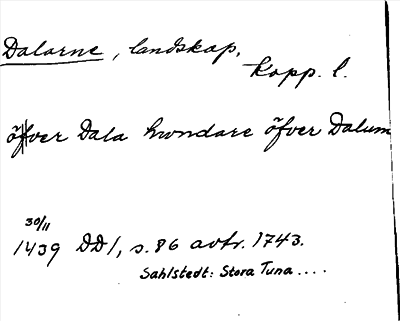 Dalarne, landskap,
Kopp. l.
öfver Dala hwndare öfver Dalum
30/11
1439 DD1, s. 86 avtr. 1743.
Sahlstedt: Stora Tuna ....